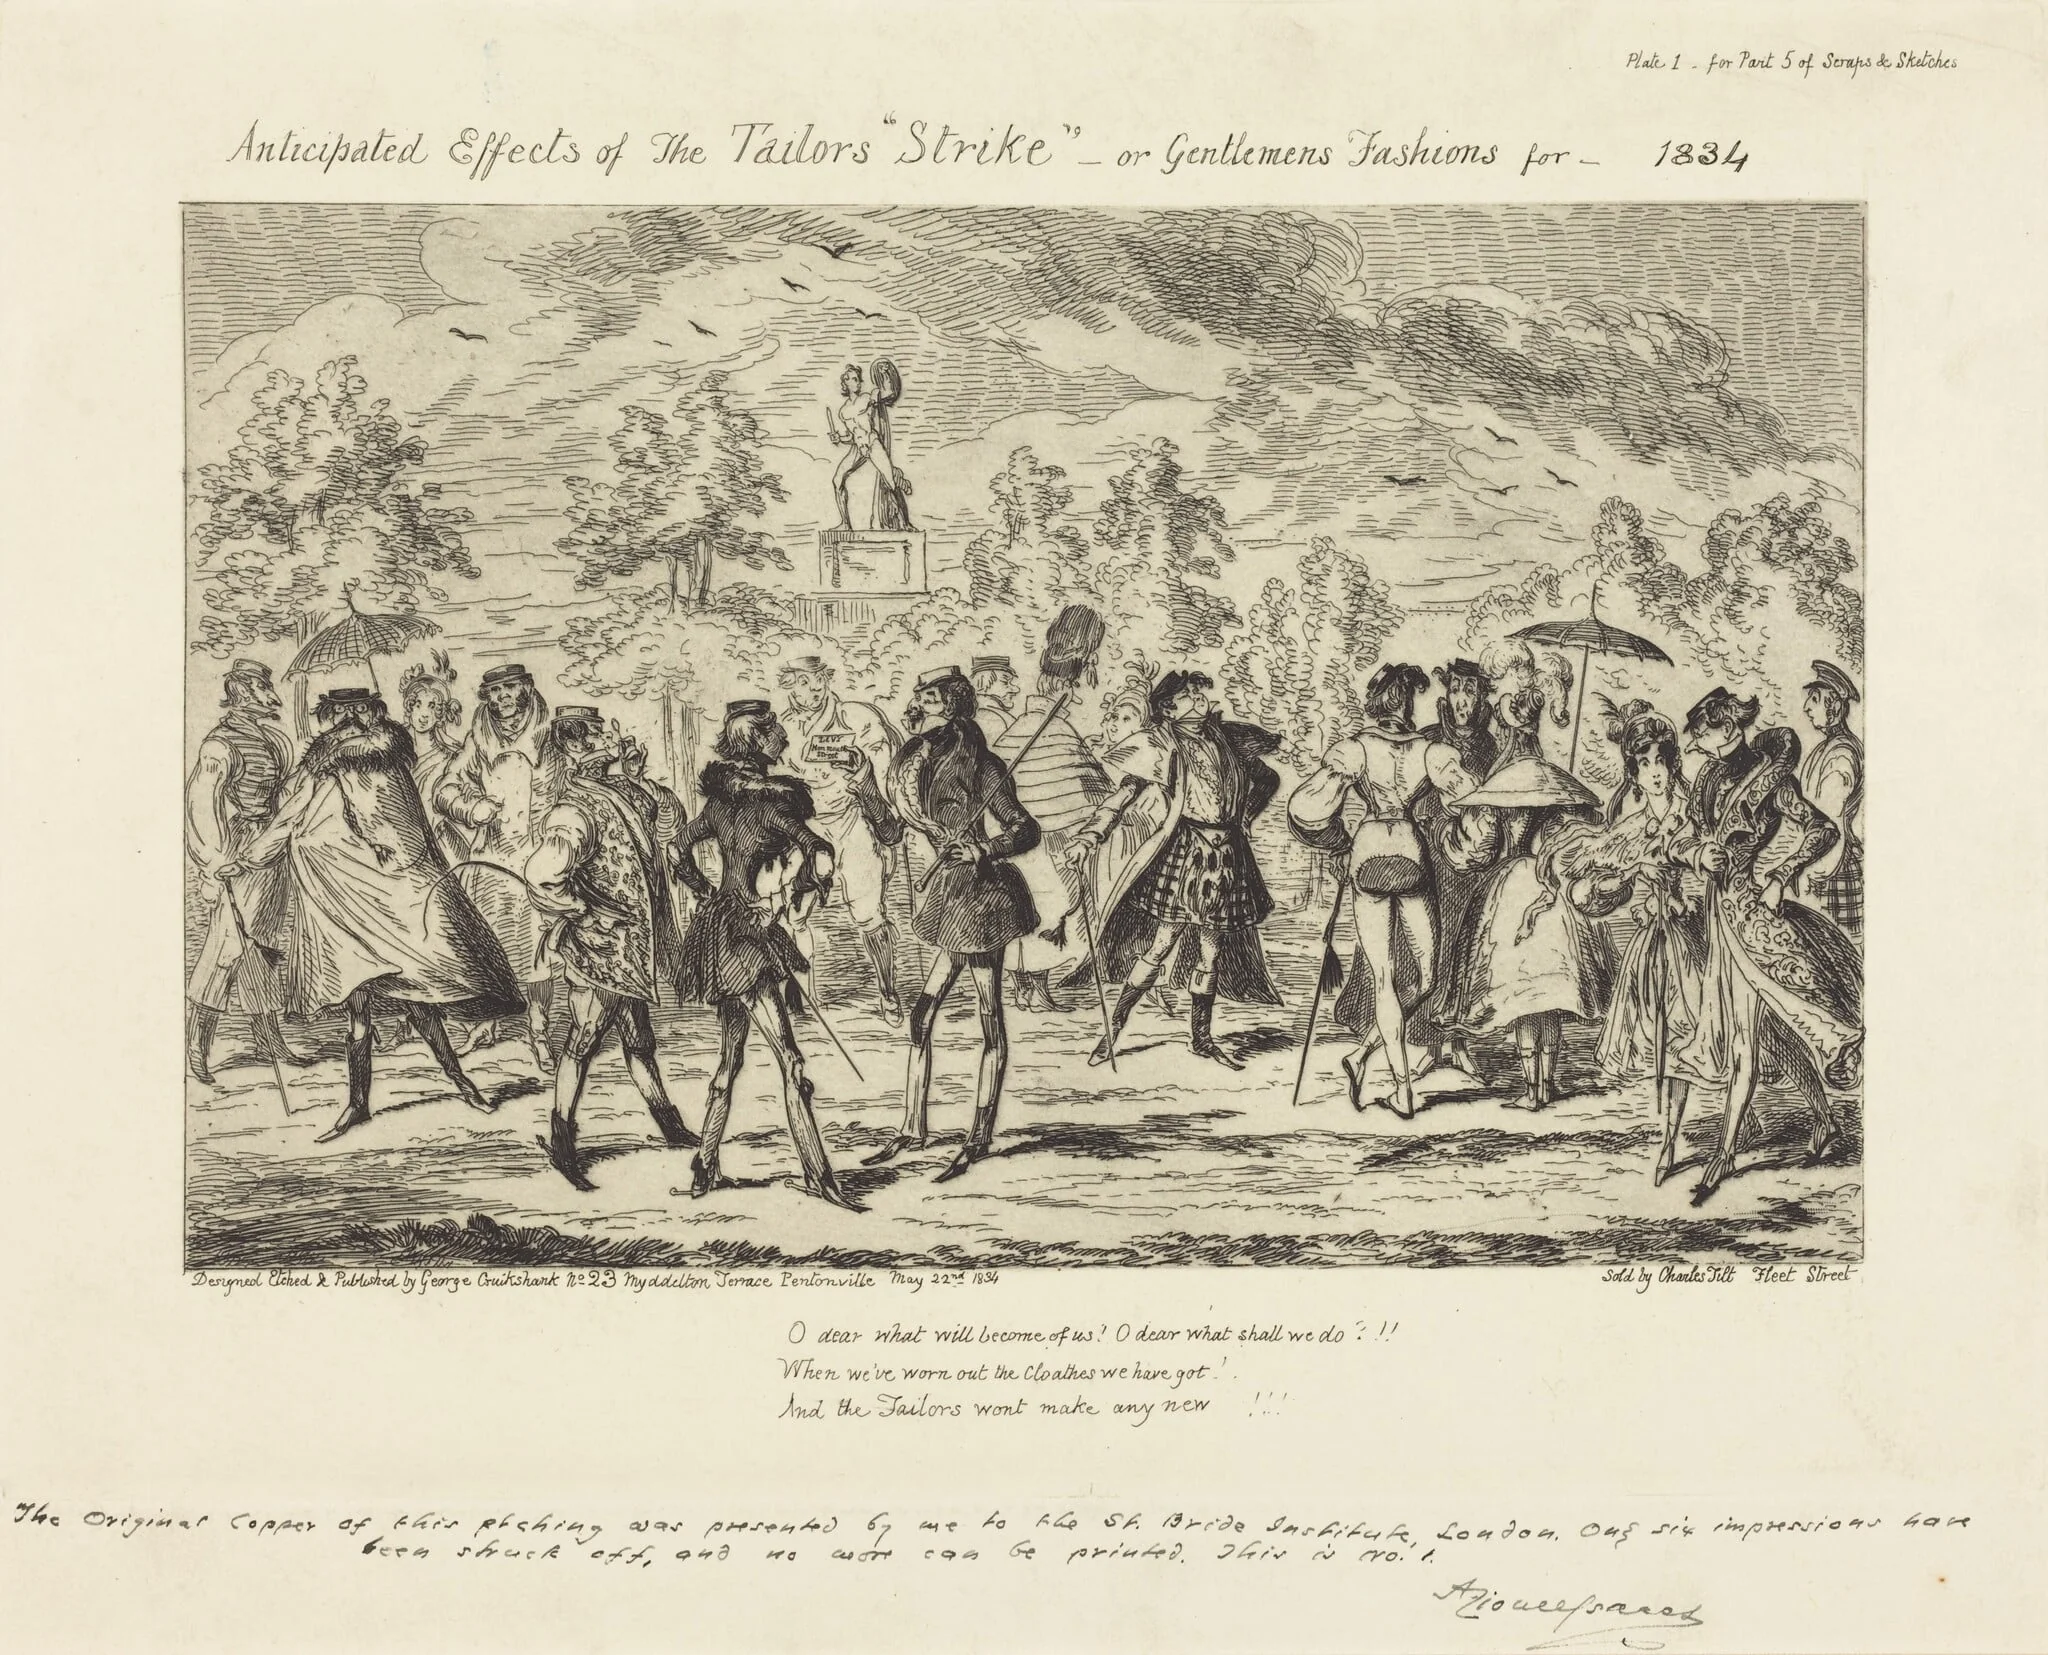 Plate 1 - for Part 5 of Scraps & Sketches
Anticipated Effects of The Tailors "Strike" - or Gentlemens Fashions for - 1834
Monmouth
Street
Designed Etched & Published by George Cruikshank No 23 Myddelton Terrace Pentonville May 22nd 1834
Sold by Charles Tilt Fleet Street
O dear what will become of us! O dear what shall we do?!!!
When we've worn out the Cloathes we have got!
And the Tailors wont make any new !!!
The Original Copper of this etching was presented by me to the St. Bride Institute, London. Only six impressions have
been struck off, and no more can be printed. This is No. 1.